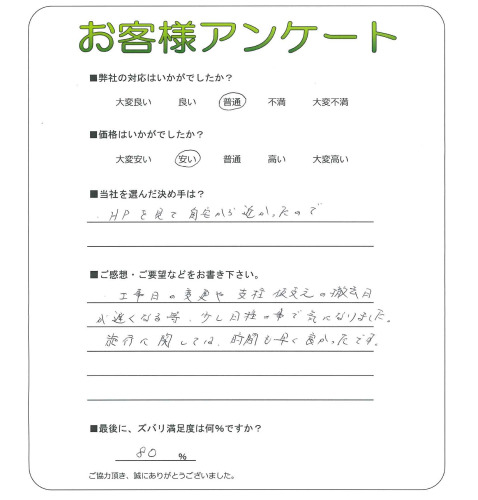 お客様アンケート
■弊社の対応はいかがでしたか？
大変良い 良い 普通 不満 大変不満
■価格はいかがでしたか？
大変安い 安い 普通 高い 大変高い
■当社を選んだ決め手は？
・HPを見て自宅から近かったので
■ご感想・ご要望などをお書き下さい。
・工事日の変更や支柱 仮支えの撤去日
が遅くなる等、少し日程の事で気になりました。
施行に関しては、時間も早く良かったです。
■最後に、ズバリ満足度は何%ですか？
80 %
ご協力頂き、誠にありがとうございました。